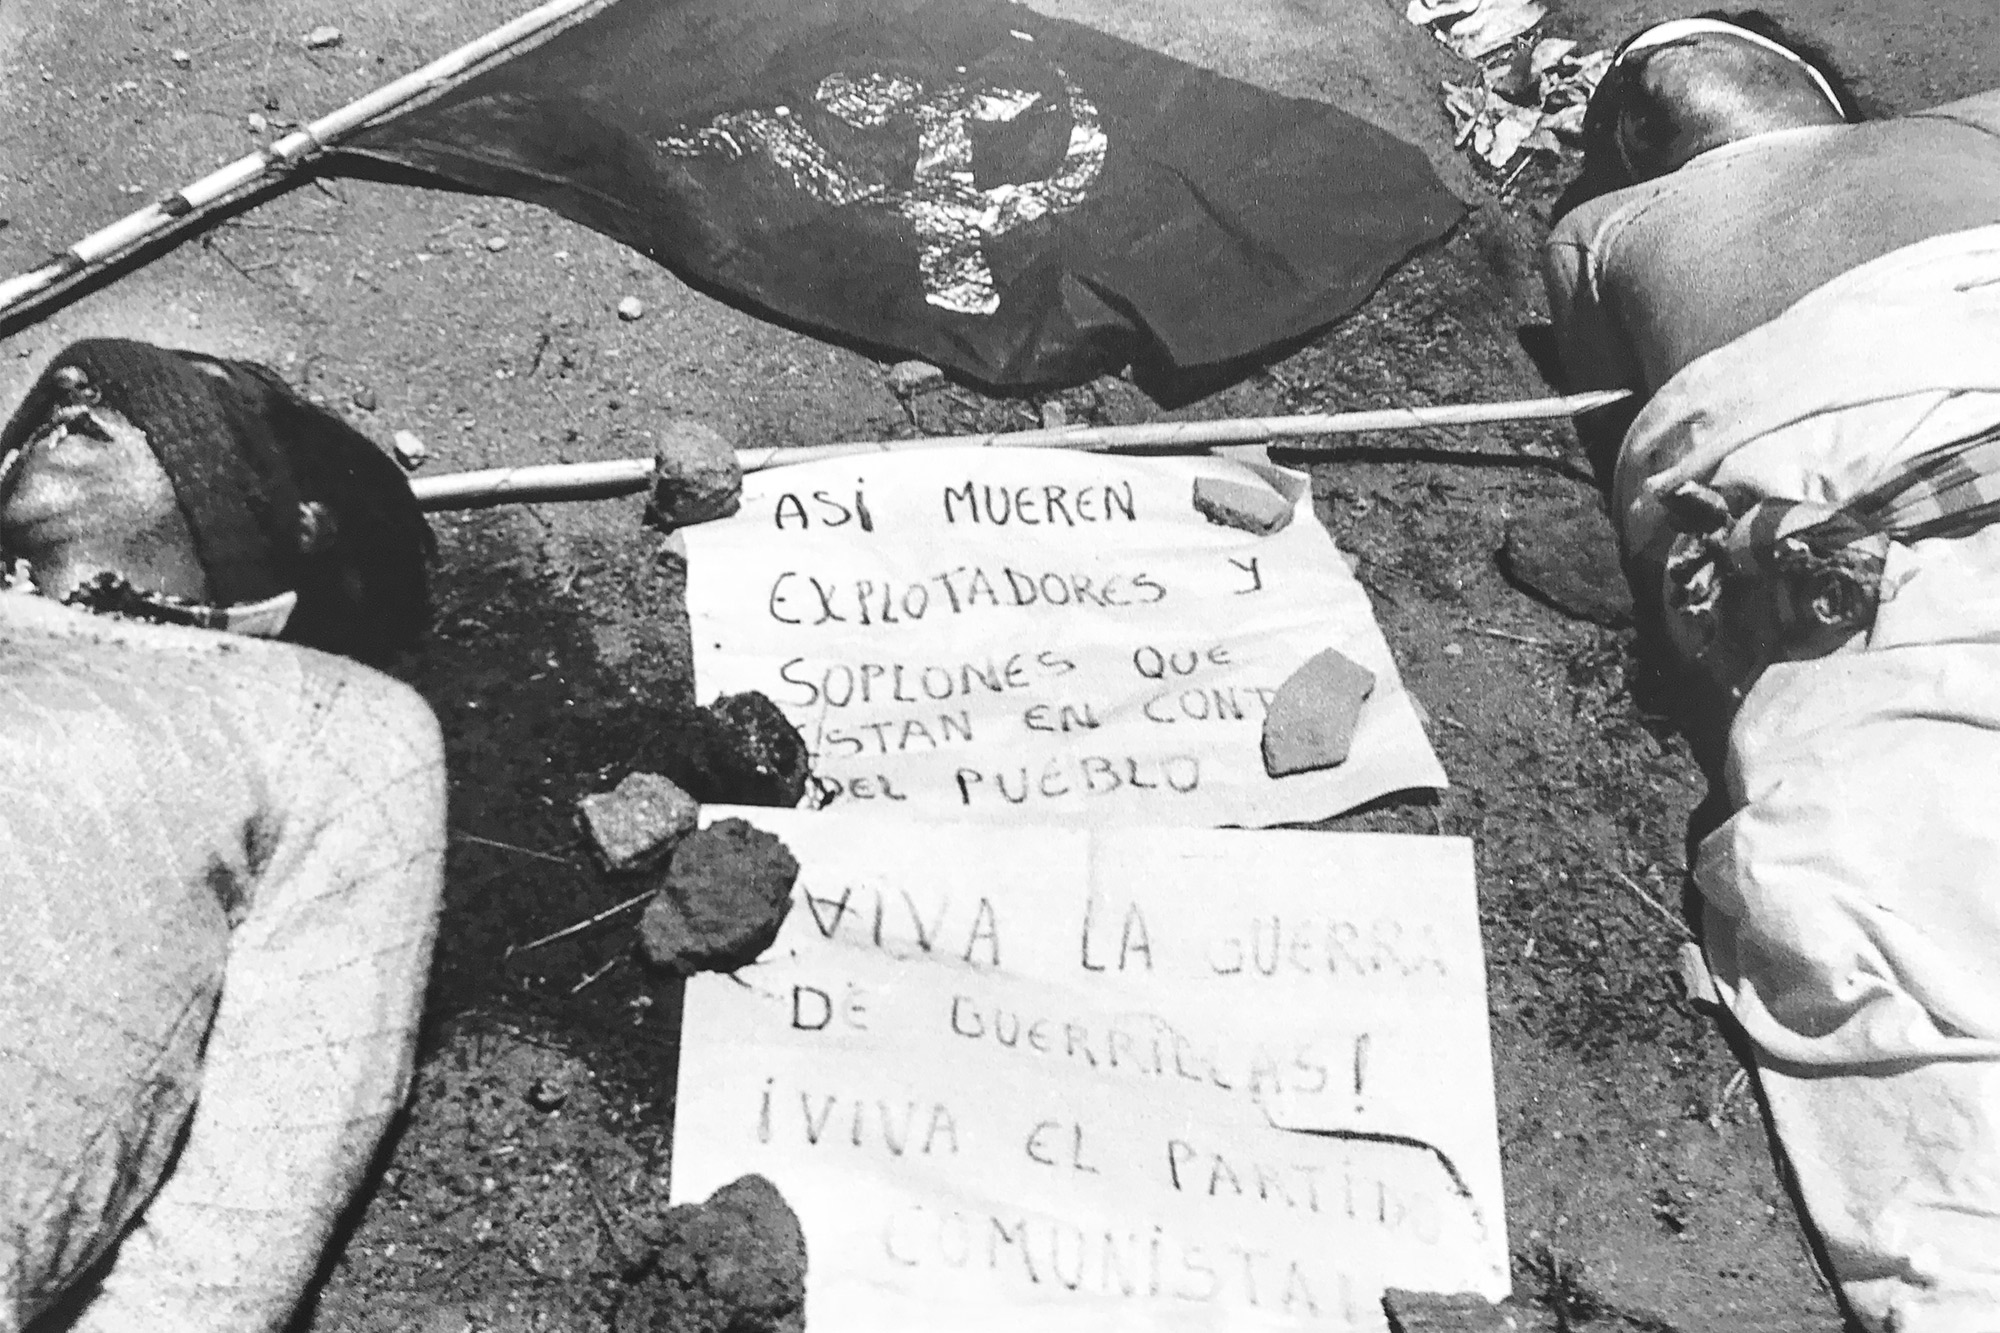 ASÍ MUEREN
EXPLOTADORES Y
SOPLONES QUE
ESTAN EN CONT
DEL PUEBLO
VIVA LA GUERRA
DE GUERRILLAS!
¡VIVA EL PARTIDO
COMUNISTA!